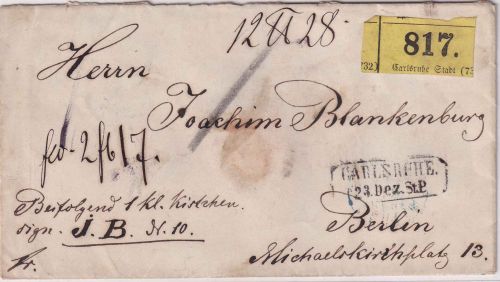 12 ℔ 28.
817.
Carlsruhe Stadt
Herrn
Joachim Blankenburg
CARLSRUHE.
23. Dez. St.P.
Beifolgend 1 kl. Kistchen.
sign. J. B. N. 10.
fr.
Berlin
Michaelskirchplatz 13.